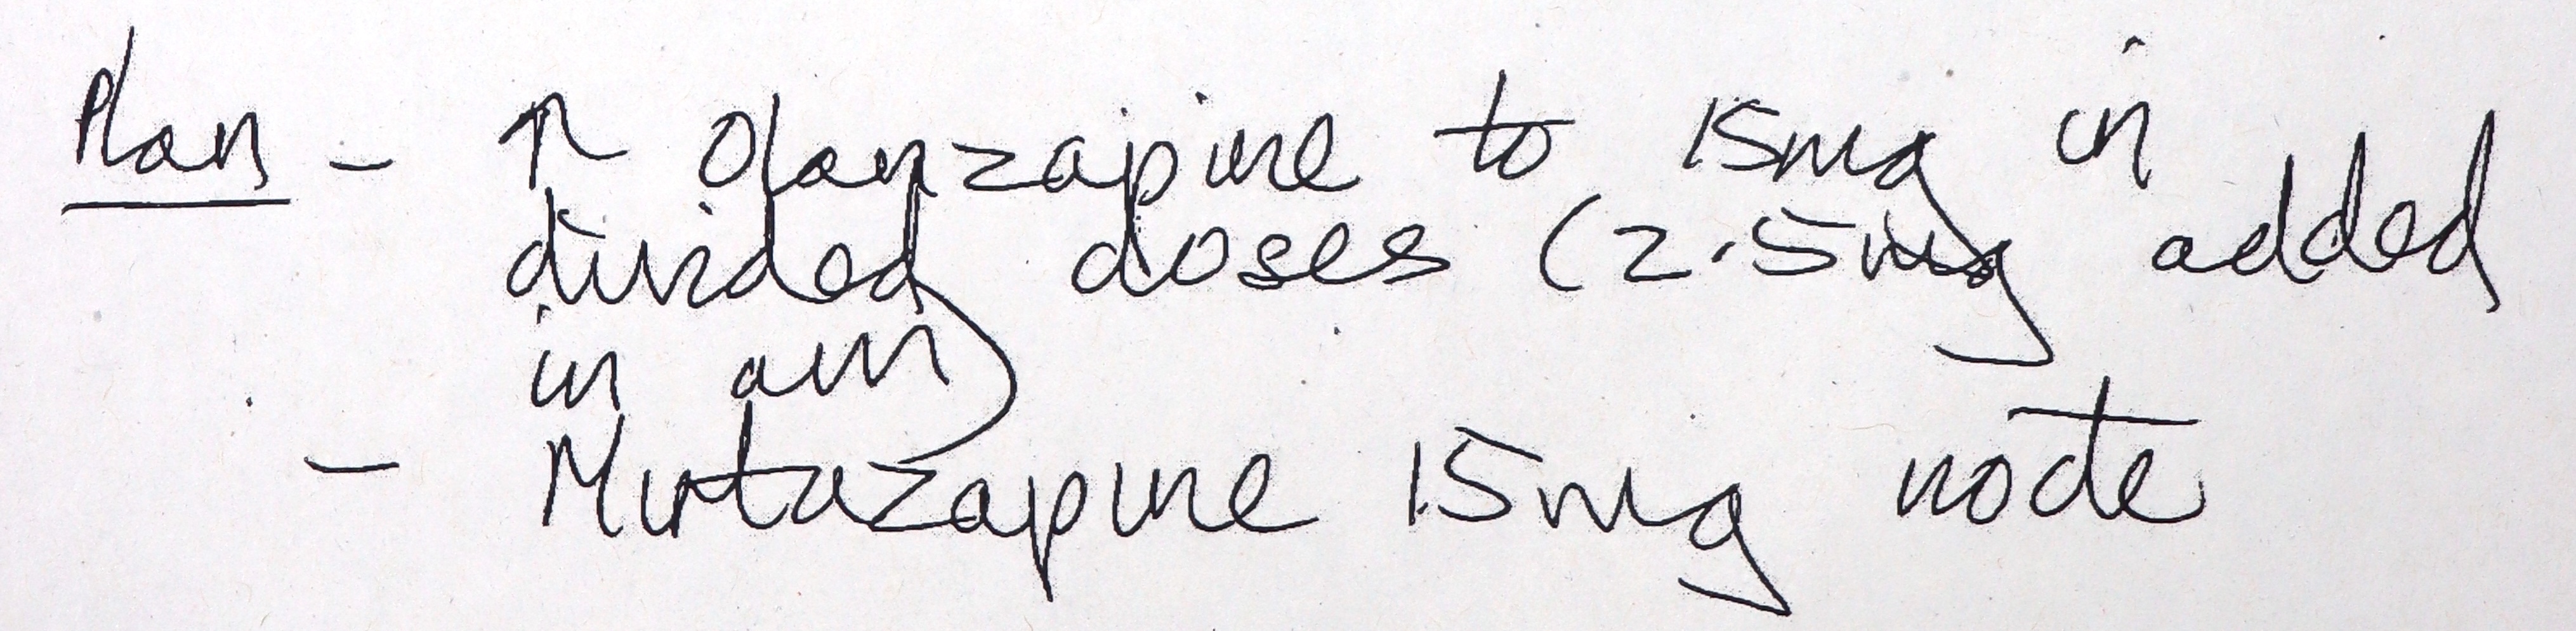 Plan - ↑ Olanzapine to 15mg in
divided doses (2.5mg added
in am)
- Mirtazapine 15mg nocte